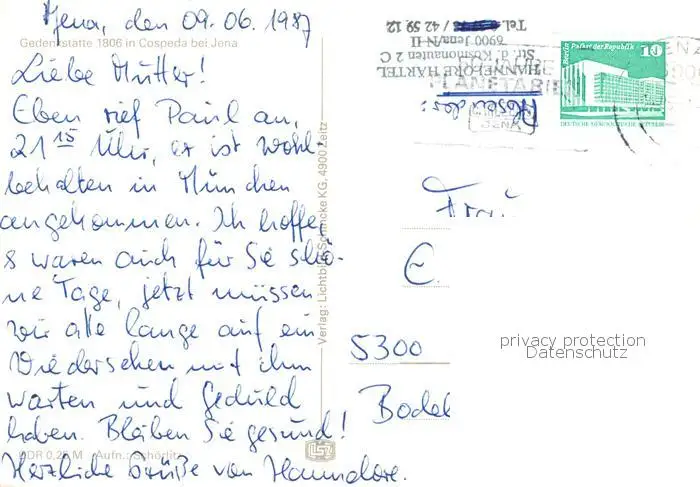 Jena, den 09.06.1987
Gedenkstätte 1806 in Cospeda bei Jena
Liebe Mutter!
Eben rief Paul an,
21 15 Uhr, er ist wohl-
behalten in München
angekommen. Ich hoffe,
s waren auch für Sie schö-
ne Tage, jetzt müssen
wir alle lange auf ein
Wiedersehen mit ihm
warten und Geduld
haben. Bleiben Sie gesund!
Herzliche Grüße von Hannelore.
DDR 0,25 M Aufn.: Schörlitz
Verlag: Lichtbild Schincke KG. 4900 Zeitz
Absender:
HANNELORE HÄRTEL
Str. d. Kosmonauten 2 C
6900 Jena/N II
Tel. 42 59 12
PLANETARIEN
JENA
Berlin Palast der Republik
10
DEUTSCHE DEMOKRATISCHE REPUBLIK
Frau
E.
5300
privacy protection
Datenschutz